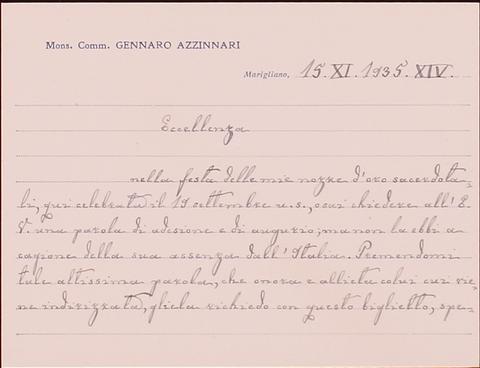 Mons. Comm. GENNARO AZZINNARI
Marigliano, 15.XI.1935.XIV.
Eccellenza
nella festa delle mie nozze d'oro sacerdota-
li, qui celebrate il 19 settembre u.s., osai chiedere all'E.
V. una parola di adesione e di augurio; ma non la ebbi a
cagione della sua assenza dall'Italia. Premendomi
tale altissima parola, che onora e allieta colui cui vie-
ne indirizzata, gliela richiedo con questo biglietto, spe-